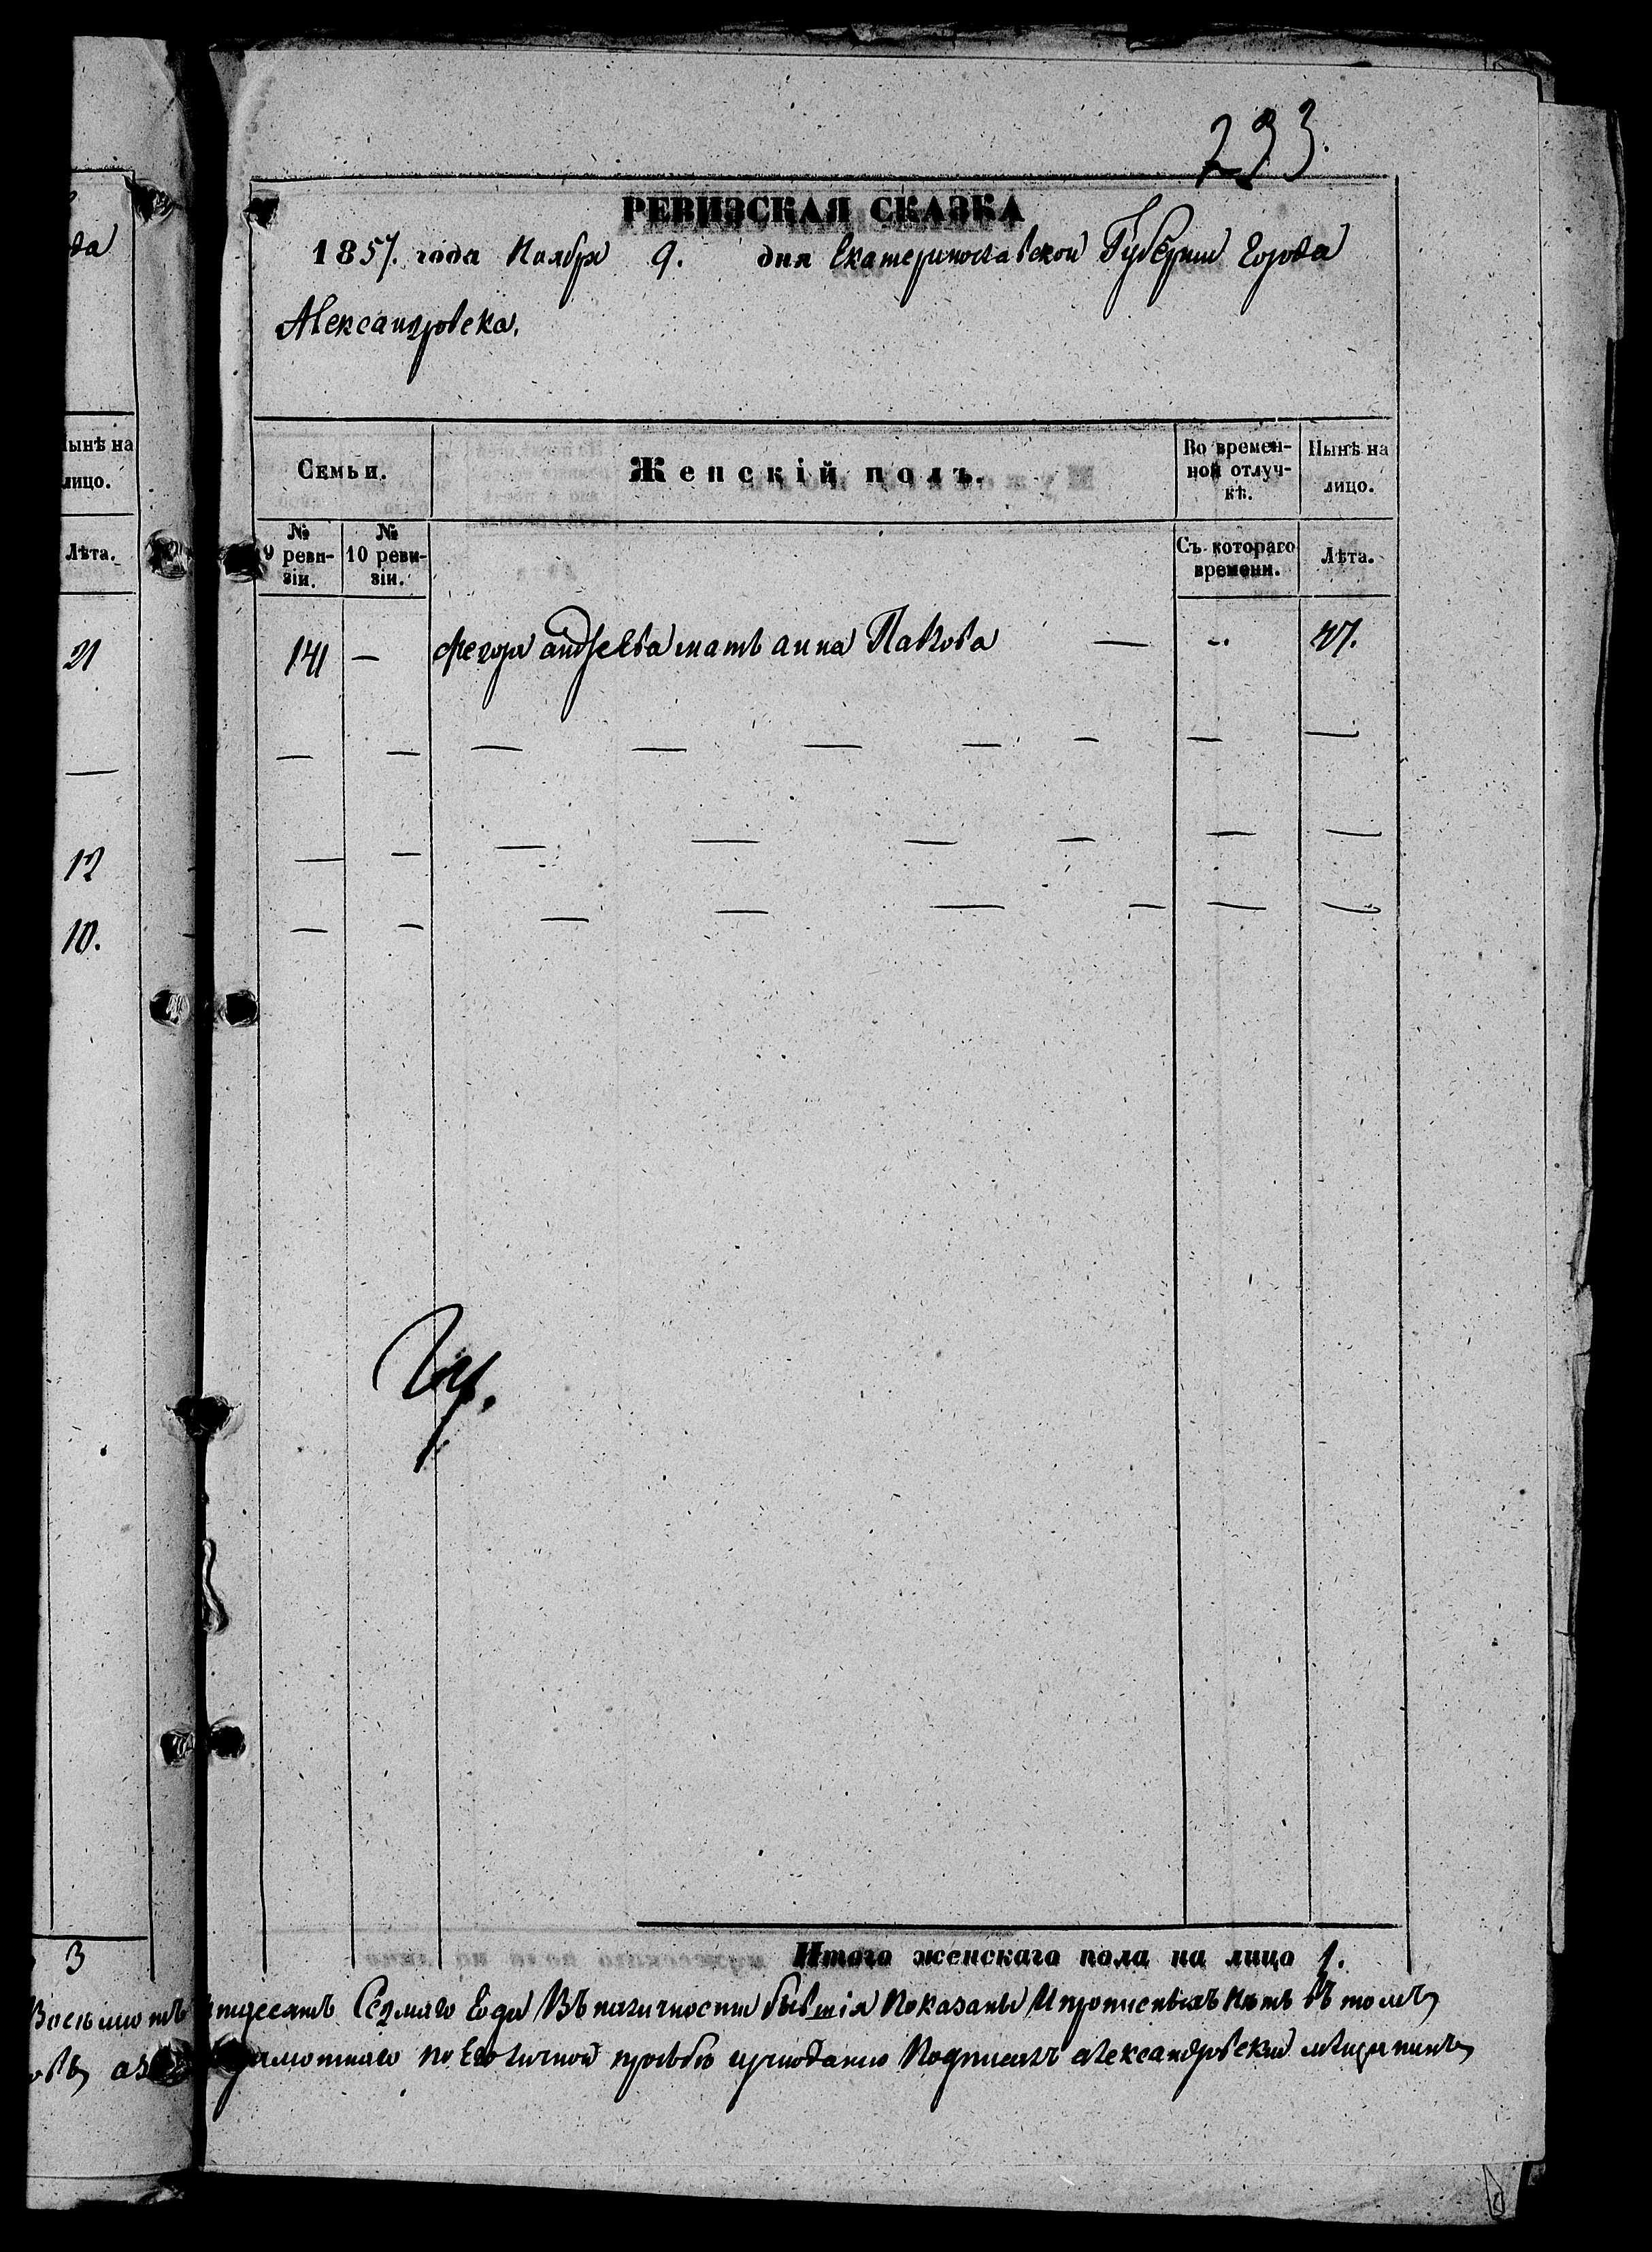 да
ынѣ на
лицо.
Лѣта.
21
12
10.
3
293.
РЕВИЗСКАЯ СКАЗКА
1857. года Ноября 9. дня Екатеринославской Губернии Города
Александровска.
Семьи.
Женскій полъ.
Во времен-
ной отлуч-
кѣ.
Нынѣ на
лицо.
№
9 реви-
зіи.
№
10 реви-
зіи.
Съ котораго
времени.
Лѣта.
141 — андреева мать анна Павлова — 47.
Итого женскаго пола на лицо 1.
Восьмсотъ пятдесятъ Седмаго Года Въ наличности бывшія Показаны И прописныхъ Нѣтъ въ томъ
по Его личной прозбѣ Подписалъ александровский мещанинъ